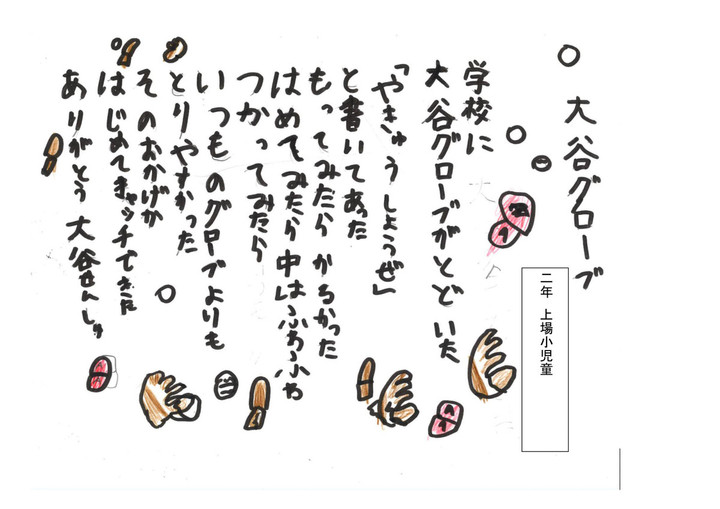 大谷グローブ
二年 上場小児童
学校に
大谷グローブがとどいた
「やきゅうしようぜ」
と書いてあった
もってみたらかるかった
はめてみたら中はふわふわ
つかってみたら
いつものグローブよりも
とりやすかった
そのおかげか
はじめてキャッチできた
ありがとう 大谷せんしゅ